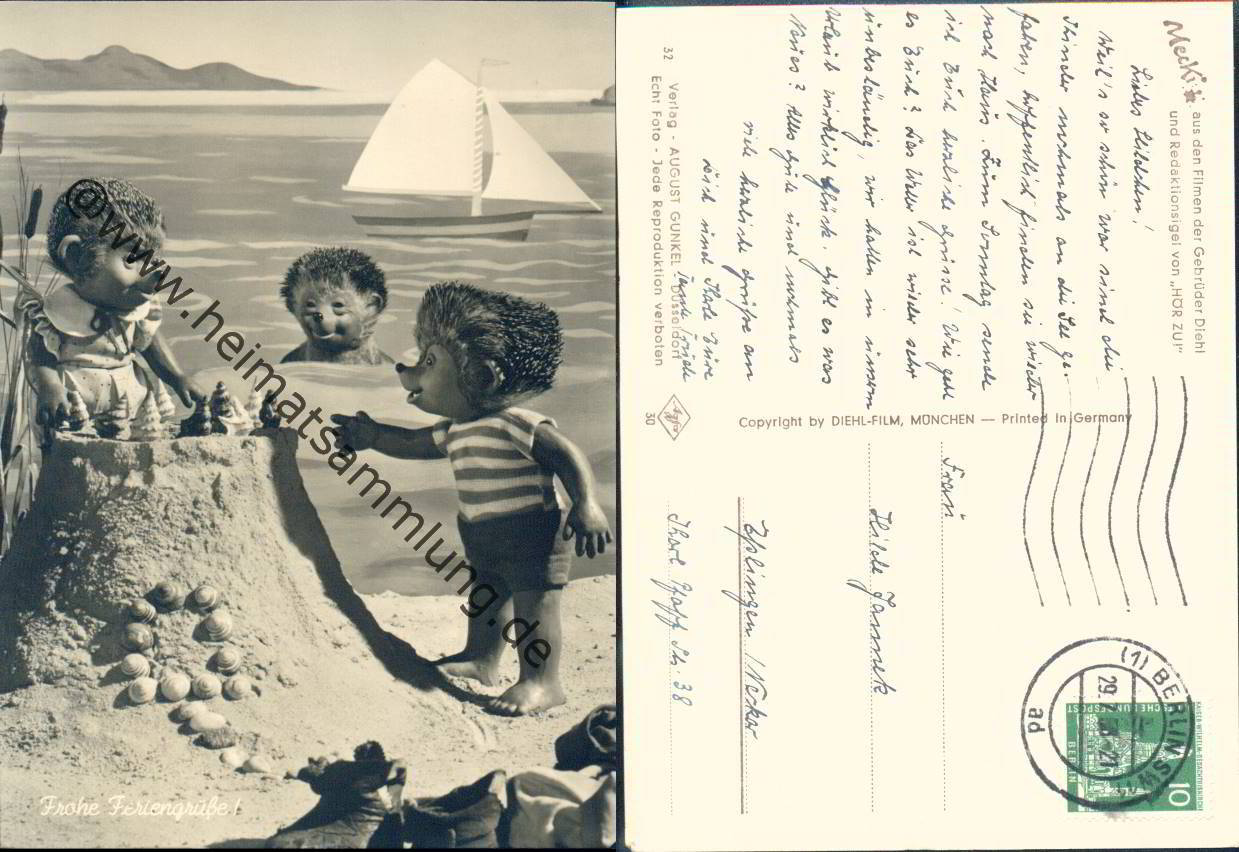 ©www.heimatsammlung.de
Frohe Feriengrüße!
Mecki
aus den Filmen der Gebrüder Diehl
und Redaktionsigel von „HÖR ZU!"
Liebes Hildchen!
Weil's so schön war sind die
Kinder nochmals an die See ge-
fahren, hoffentlich finden sie wieder
nach Haus. Zum Sonntag sende
ich Euch herzliche Grüsse! Wie geht
es Euch? Das Wetter ist wieder sehr
unbeständig, wir hatten in unserm
Urlaub wirklich Glück. Gibt es was
Neues? Alles Gute und nochmals
viele herzliche Grüße an
Dich und Karle Eure
32 Verlag - AUGUST GUNKEL - Düsseldorf
Echt Foto - Jede Reproduktion verboten
30
Agfa
Copyright by DIEHL-FILM, MÜNCHEN — Printed in Germany
Frau
Hilde
Eßlingen / Neckar
Str. 38
(1) BERLIN SW 11
29.
ad
DEUTSCHE BUNDESPOST
BERLIN
10